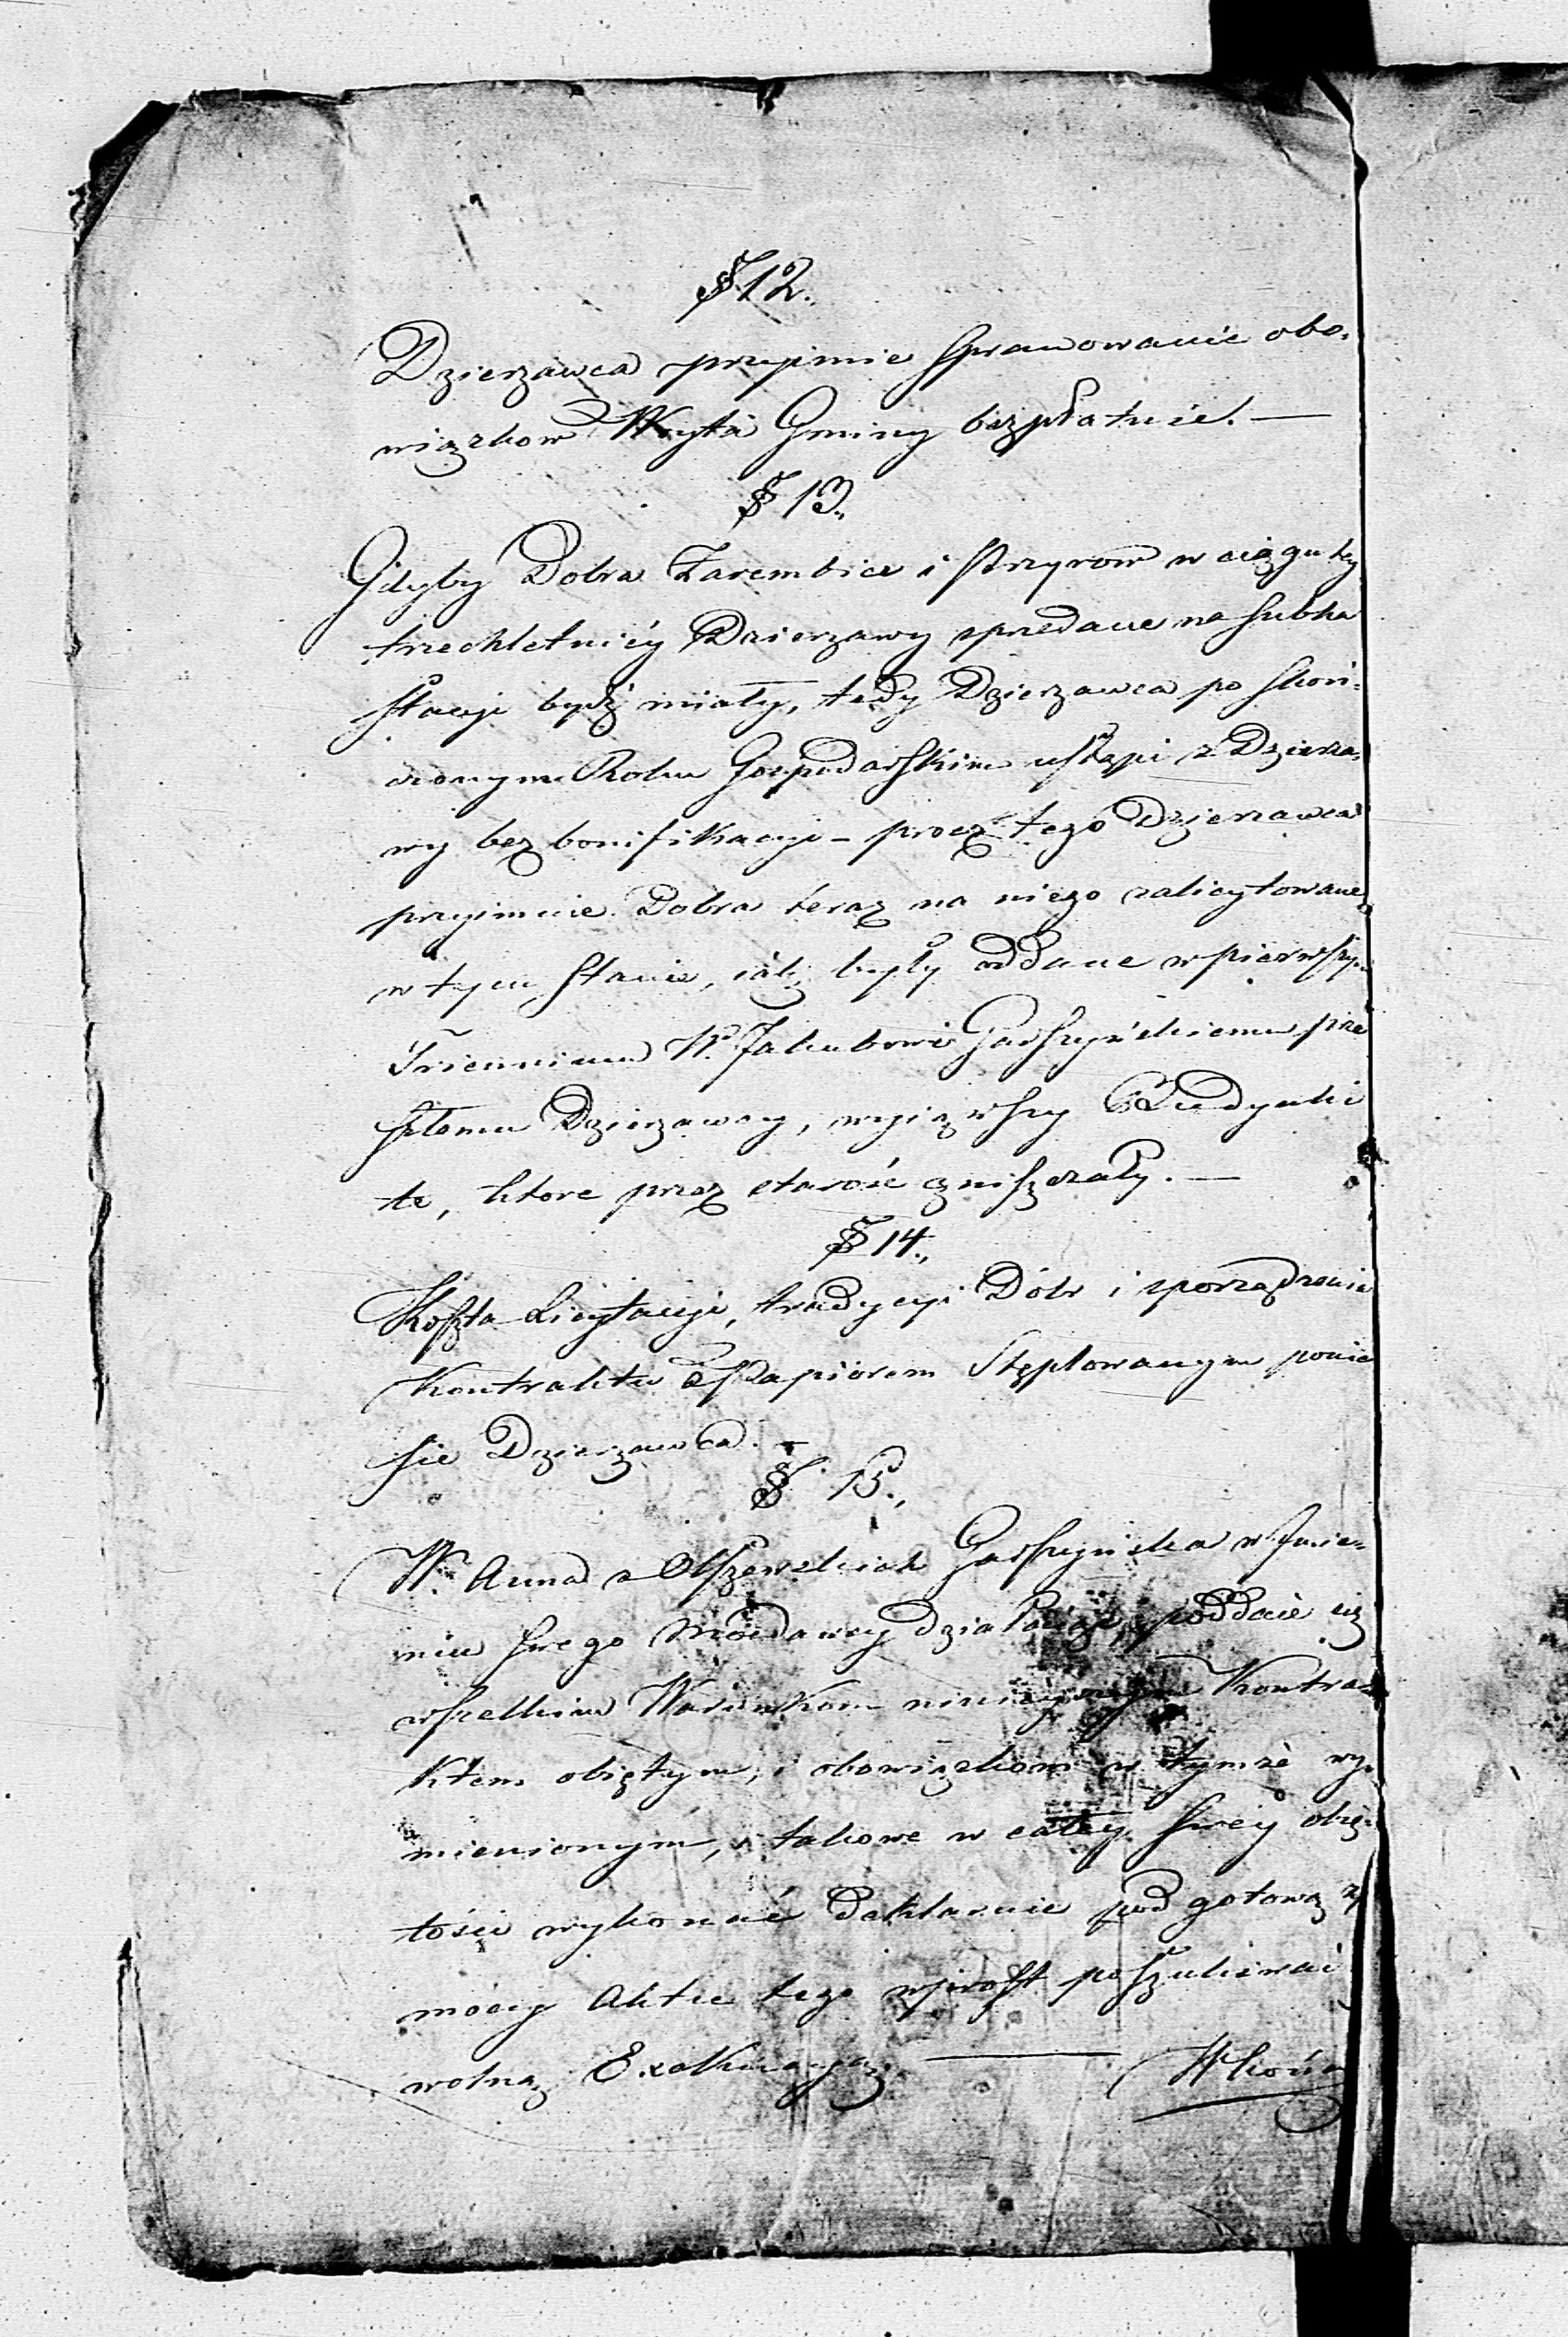 § 12.
Dzierzawca przyimie sprawowanie obo-
wiązkow Woyta Gminy bezpłatnie. —
§ 13.
Gdyby Dobra Zarembice i Przyrow w ciągu tey
trzechletniéy Dzierzawy sprzedane na subha
stacyi bydź miały, tedy Dzierzawca po skoń-
czonym Roku Gospodarskim ustąpi z Dzierza-
wy bez bonifikacyi – procz tego Dzierzawca
przyimuie Dobra teraz na niego zalicytowane
w tym stanie, iak były oddane w pierwszym
Triennium W. Jakubowi Garszyńskiemu prze
szłemu Dzierzawcy, wyiąwszy Budynki
te, ktore przez starość zniszczały. —
§ 14.
Koszta Licytacyi, tradycyi Dóbr i sporządzenia
Kontraktu z Papiérem Stęplowanym ponie
sie Dzierzawca. —
§ 15.
W. Anna z Olszewskich Garszyńska w Imie-
niu swego Mocdawcy działaiąca, poddaie się
wszelkim Warunkom ninieyszym Kontra-
ktem obiętym, i obowiązkom w tymże wy-
mienionym, i takowe w całéy swéy obię-
tości wykonać deklaruie pod gotową z
mocy Aktu tego wprost poszukiwać
wolną Exekucyą. —
W końcu